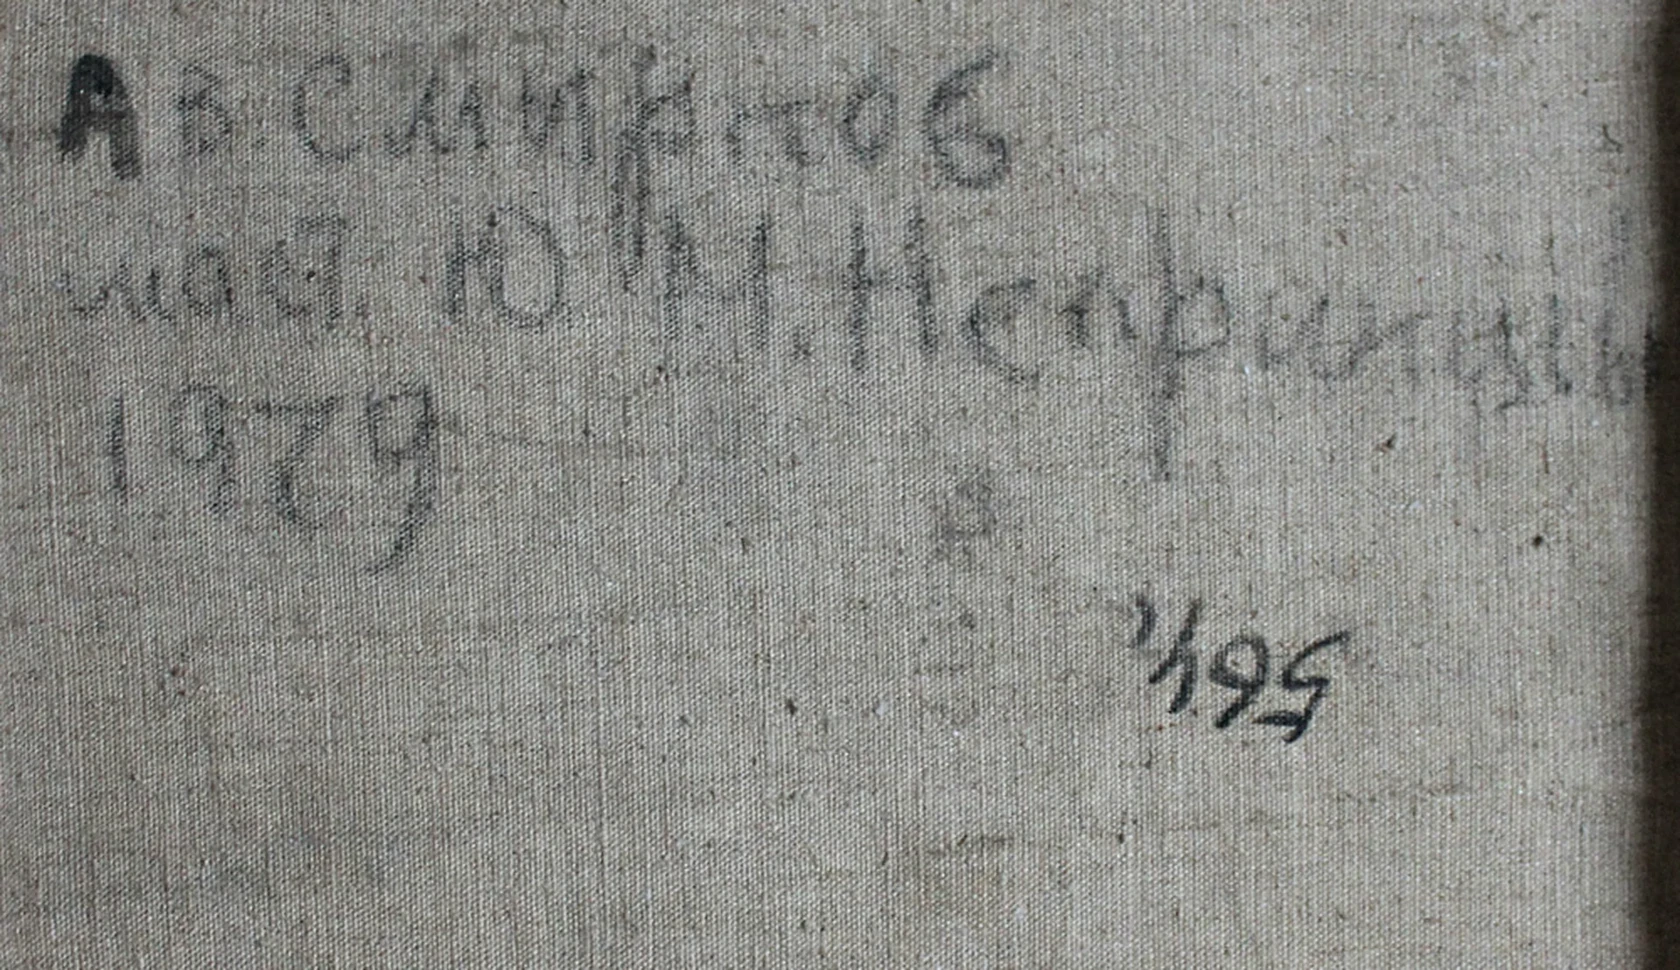 Ав. Смирнов
маст. Ю.М.Непринцев
1979
564